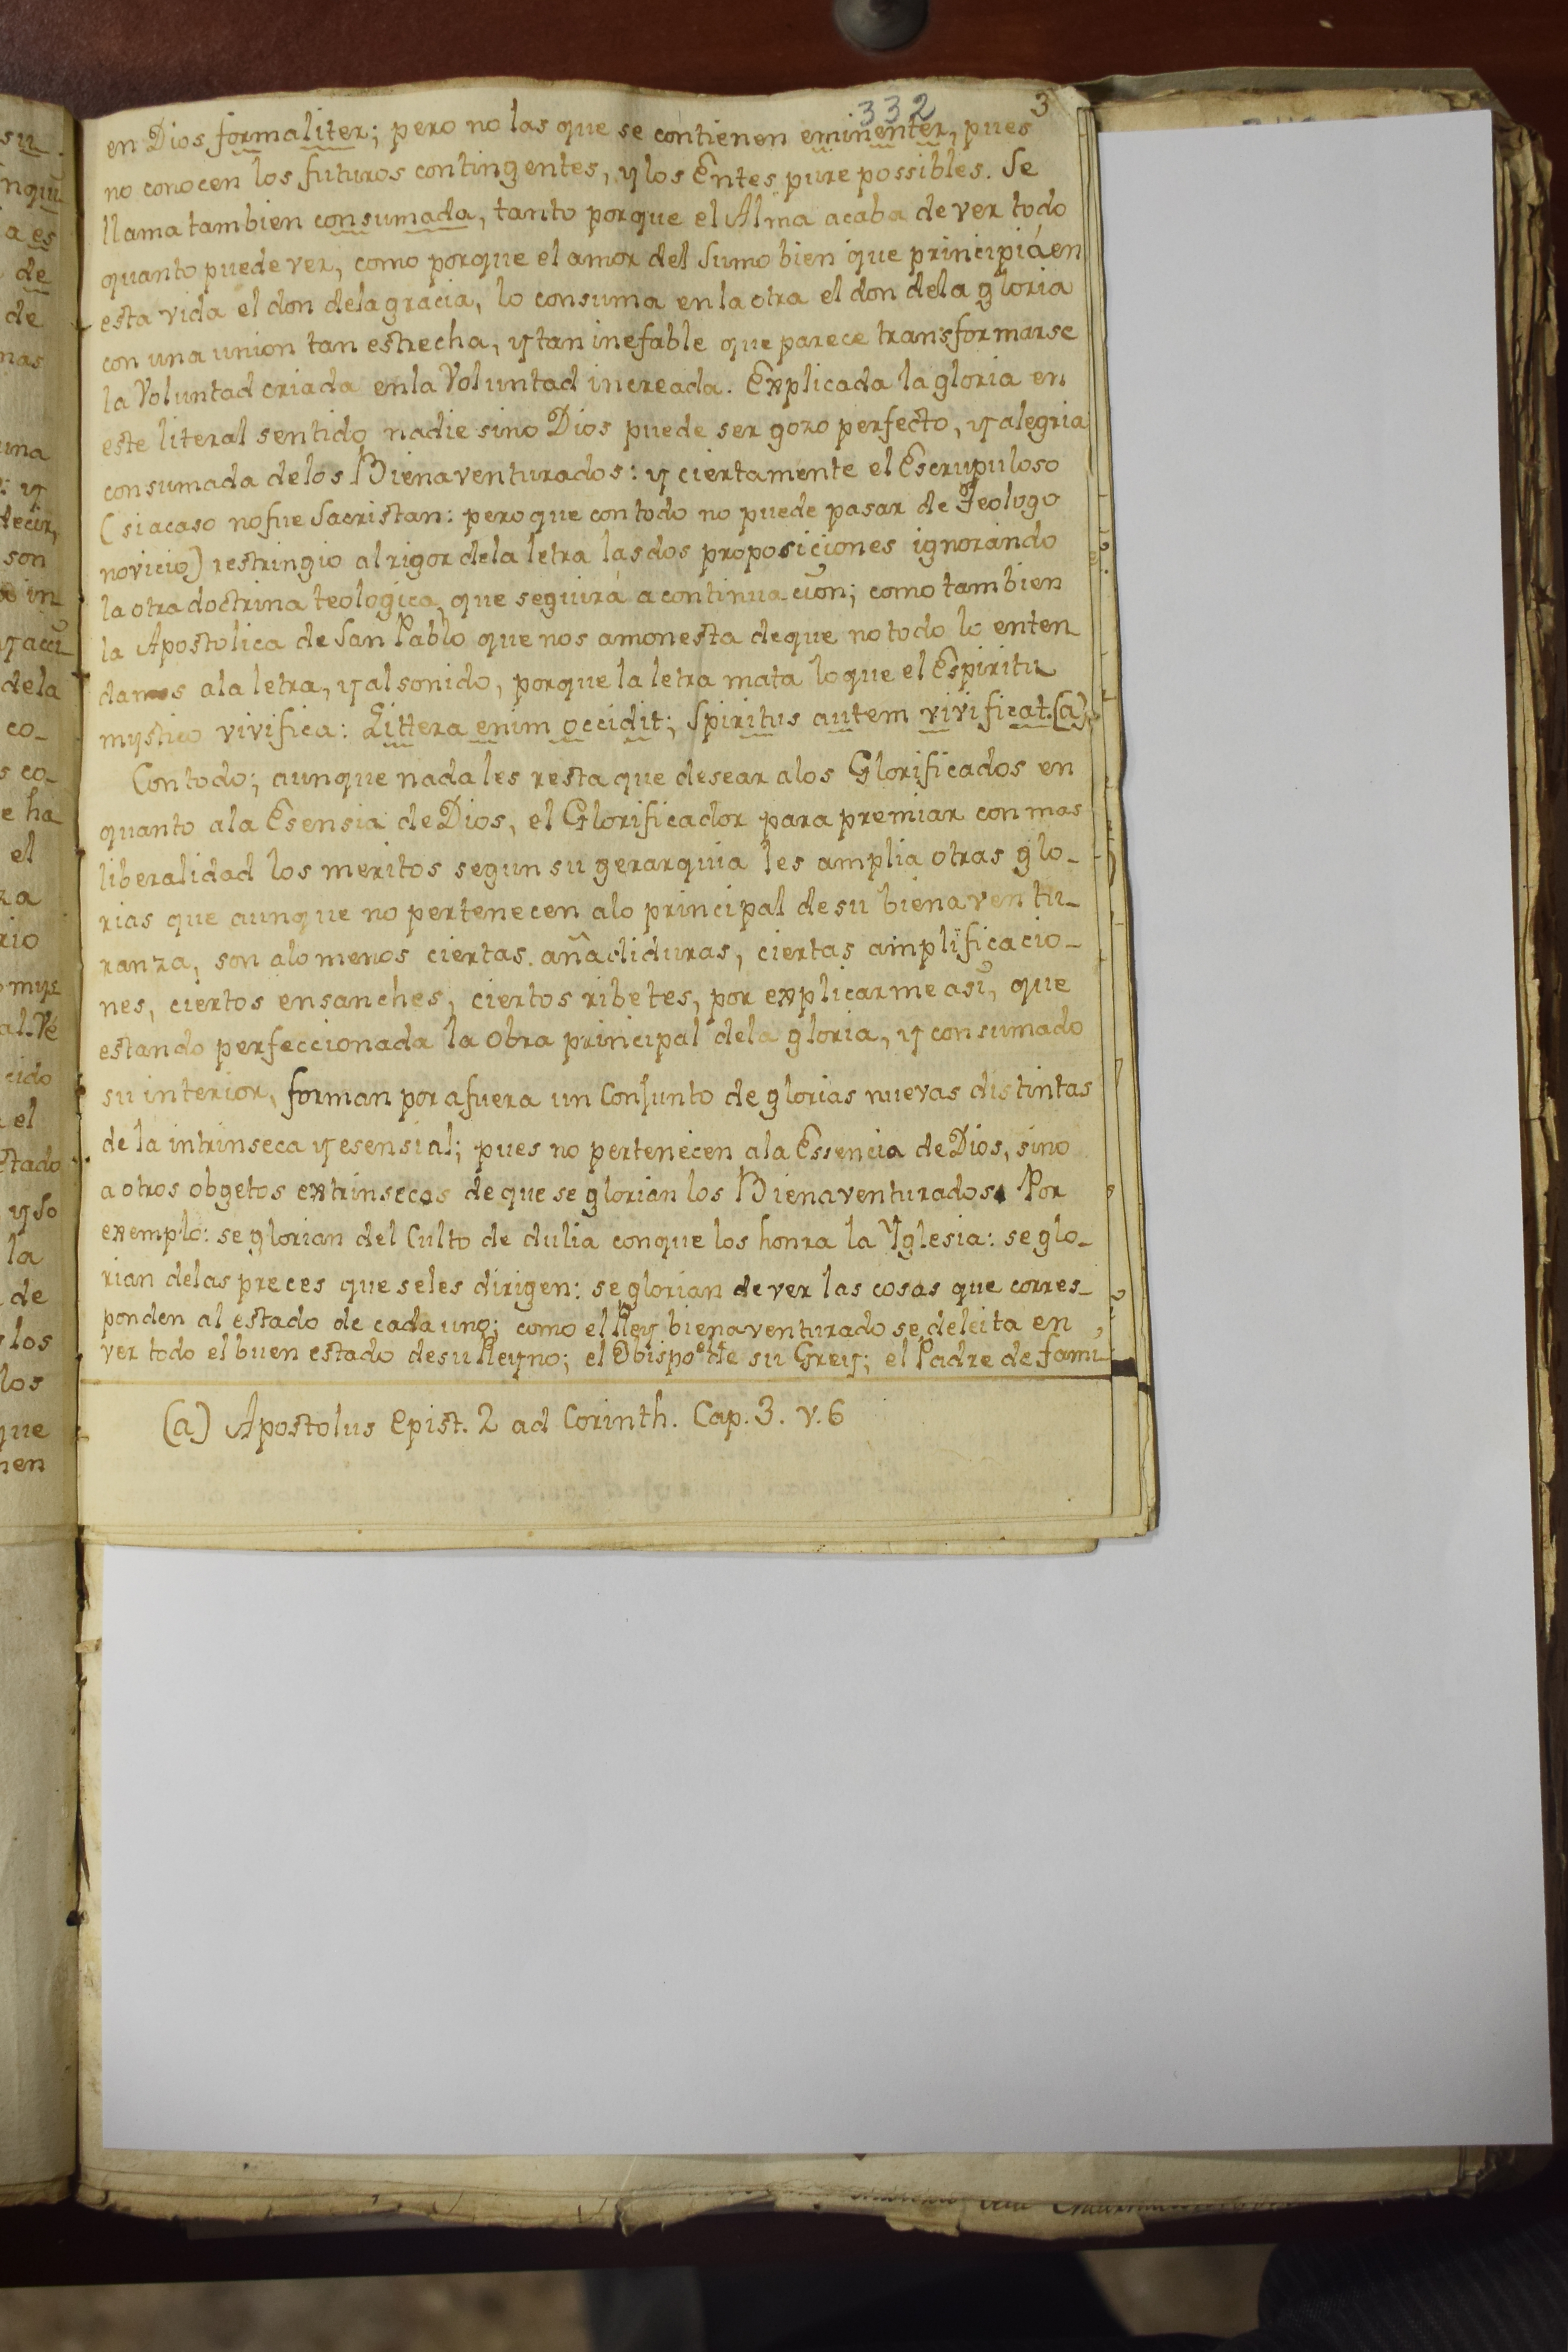 332 3
en Dios formaliter; pero no las que se contienen eminenter, pues
no conocen los futuros contingentes, y los Entes pure possibles. Se
llama tambien consumada, tanto porque el Alma acaba de ver todo
quanto puede ver, como porque el amor del Sumo bien que principiá en
esta vida el don dela gracia, lo consuma en la otra el don dela gloria
con una union tan estrecha, y tan inefable que parece transformarse
la Voluntad criada en la Voluntad increada. Explicada la gloria en
este literal sentido nadie sino Dios puede ser gozo perfecto, y alegria
consumada delos Bienaventurados: y ciertamente el Escrupuloso
(si acaso no fue Sacristan: pero que con todo no puede pasar de Teologo
novicio) restringio al rigor dela letra las dos proposiciones ignorando
la otra doctrina teologica, que seguirá a continuacion; como tambien
la Apostolica de San Pablo que nos amonesta de que no todo lo enten
damos ala letra, y al sonido, porque la letra mata lo que el Espiritu
mystico vivifica: Littera enim occidit; Spiritus autem vivificat.(a)
Con todo; aunque nada les resta que desear alos Glorificados en
quanto ala Esensia de Dios, el Glorificador para premiar con mas
liberalidad los meritos segun su gerarquia les amplia otras glo-
rias que aunque no pertenecen alo principal de su bienaventu-
ranza, son alo menos ciertas añadiduras, ciertas amplificacio-
nes, ciertos ensanches, ciertos ribetes, por explicarme asi, que
estando perfeccionada la obra principal dela gloria, y consumado
su interior, forman por afuera un Conjunto de glorias nuevas distintas
de la intrinseca y esensial; pues no pertenecen ala Essencia de Dios, sino
a otros obgetos extrinsecos de que se glorian los Bienaventurados. Por
exemplo: se glorian del Culto de dulia conque los honra la Yglesia: se glo-
rian delas preces que se les dirigen: se glorian de ver las cosas que corres-
ponden al estado de cada uno; como el Rey bienaventurado se deleita en
ver todo el buen estado de su Reyno; el Obispo el de su Grey; el Padre de fami-
(a) Apostolus Epist. 2 ad Corinth. Cap. 3. v. 6